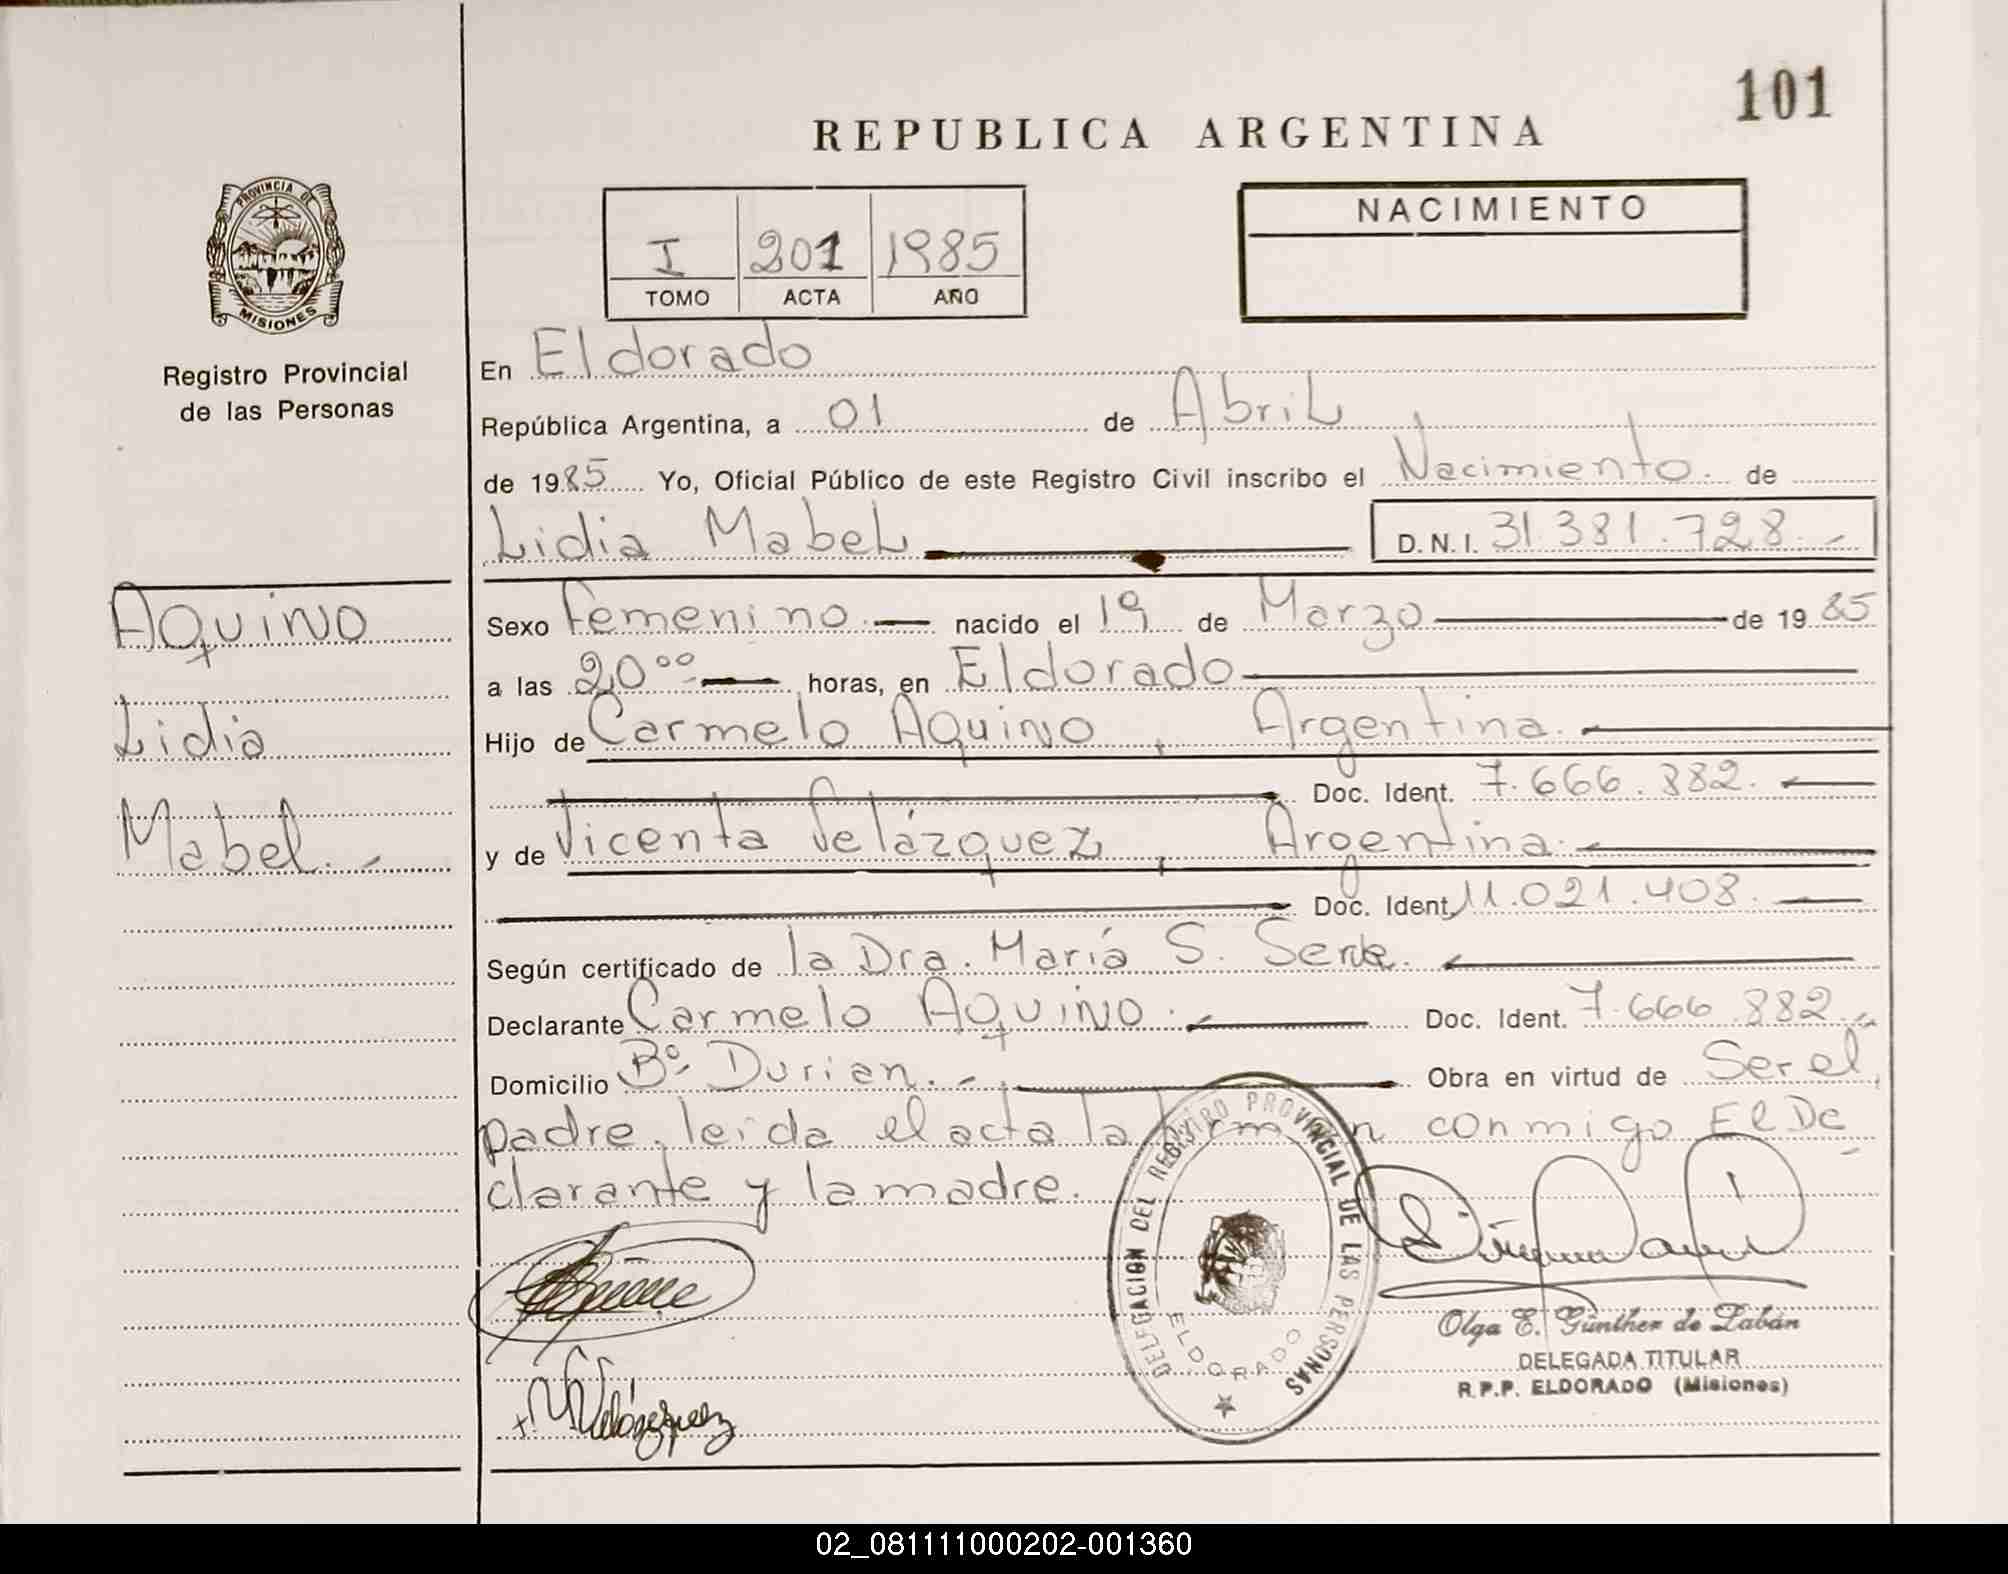 101
REPUBLICA ARGENTINA
PROVINCIA DE
MISIONES
Registro Provincial
de las Personas
I 201 1985
TOMO ACTA AÑO
NACIMIENTO
En Eldorado
República Argentina, a 01 de Abril
de 1985 Yo, Oficial Público de este Registro Civil inscribo el Nacimiento. de
Lidia Mabel D.N.I. 31.381.728.-
Aquino
Lidia
Mabel.-
Sexo Femenino.— nacido el 19 de Marzo de 1985
a las 20⁰⁰ horas, en Eldorado
Hijo de Carmelo Aquino, Argentina.
Doc. Ident. 7.666.882.
y de Vicenta Velázquez, Argentina.
Doc. Ident. 11.021.408.
Según certificado de la Dra. María S.
Declarante Carmelo Aquino. Doc. Ident. 7.666.882.-
Domicilio Bº Durian.- Obra en virtud de Ser el
padre, leída el acta la firman conmigo El De
clarante y la madre.
DELEGACION DEL REGISTRO PROVINCIAL DE LAS PERSONAS
ELDORADO
V Velázquez
Olga E. Günther de Zabán
DELEGADA TITULAR
R.P.P. ELDORADO (Misiones)
02_081111000202-001360